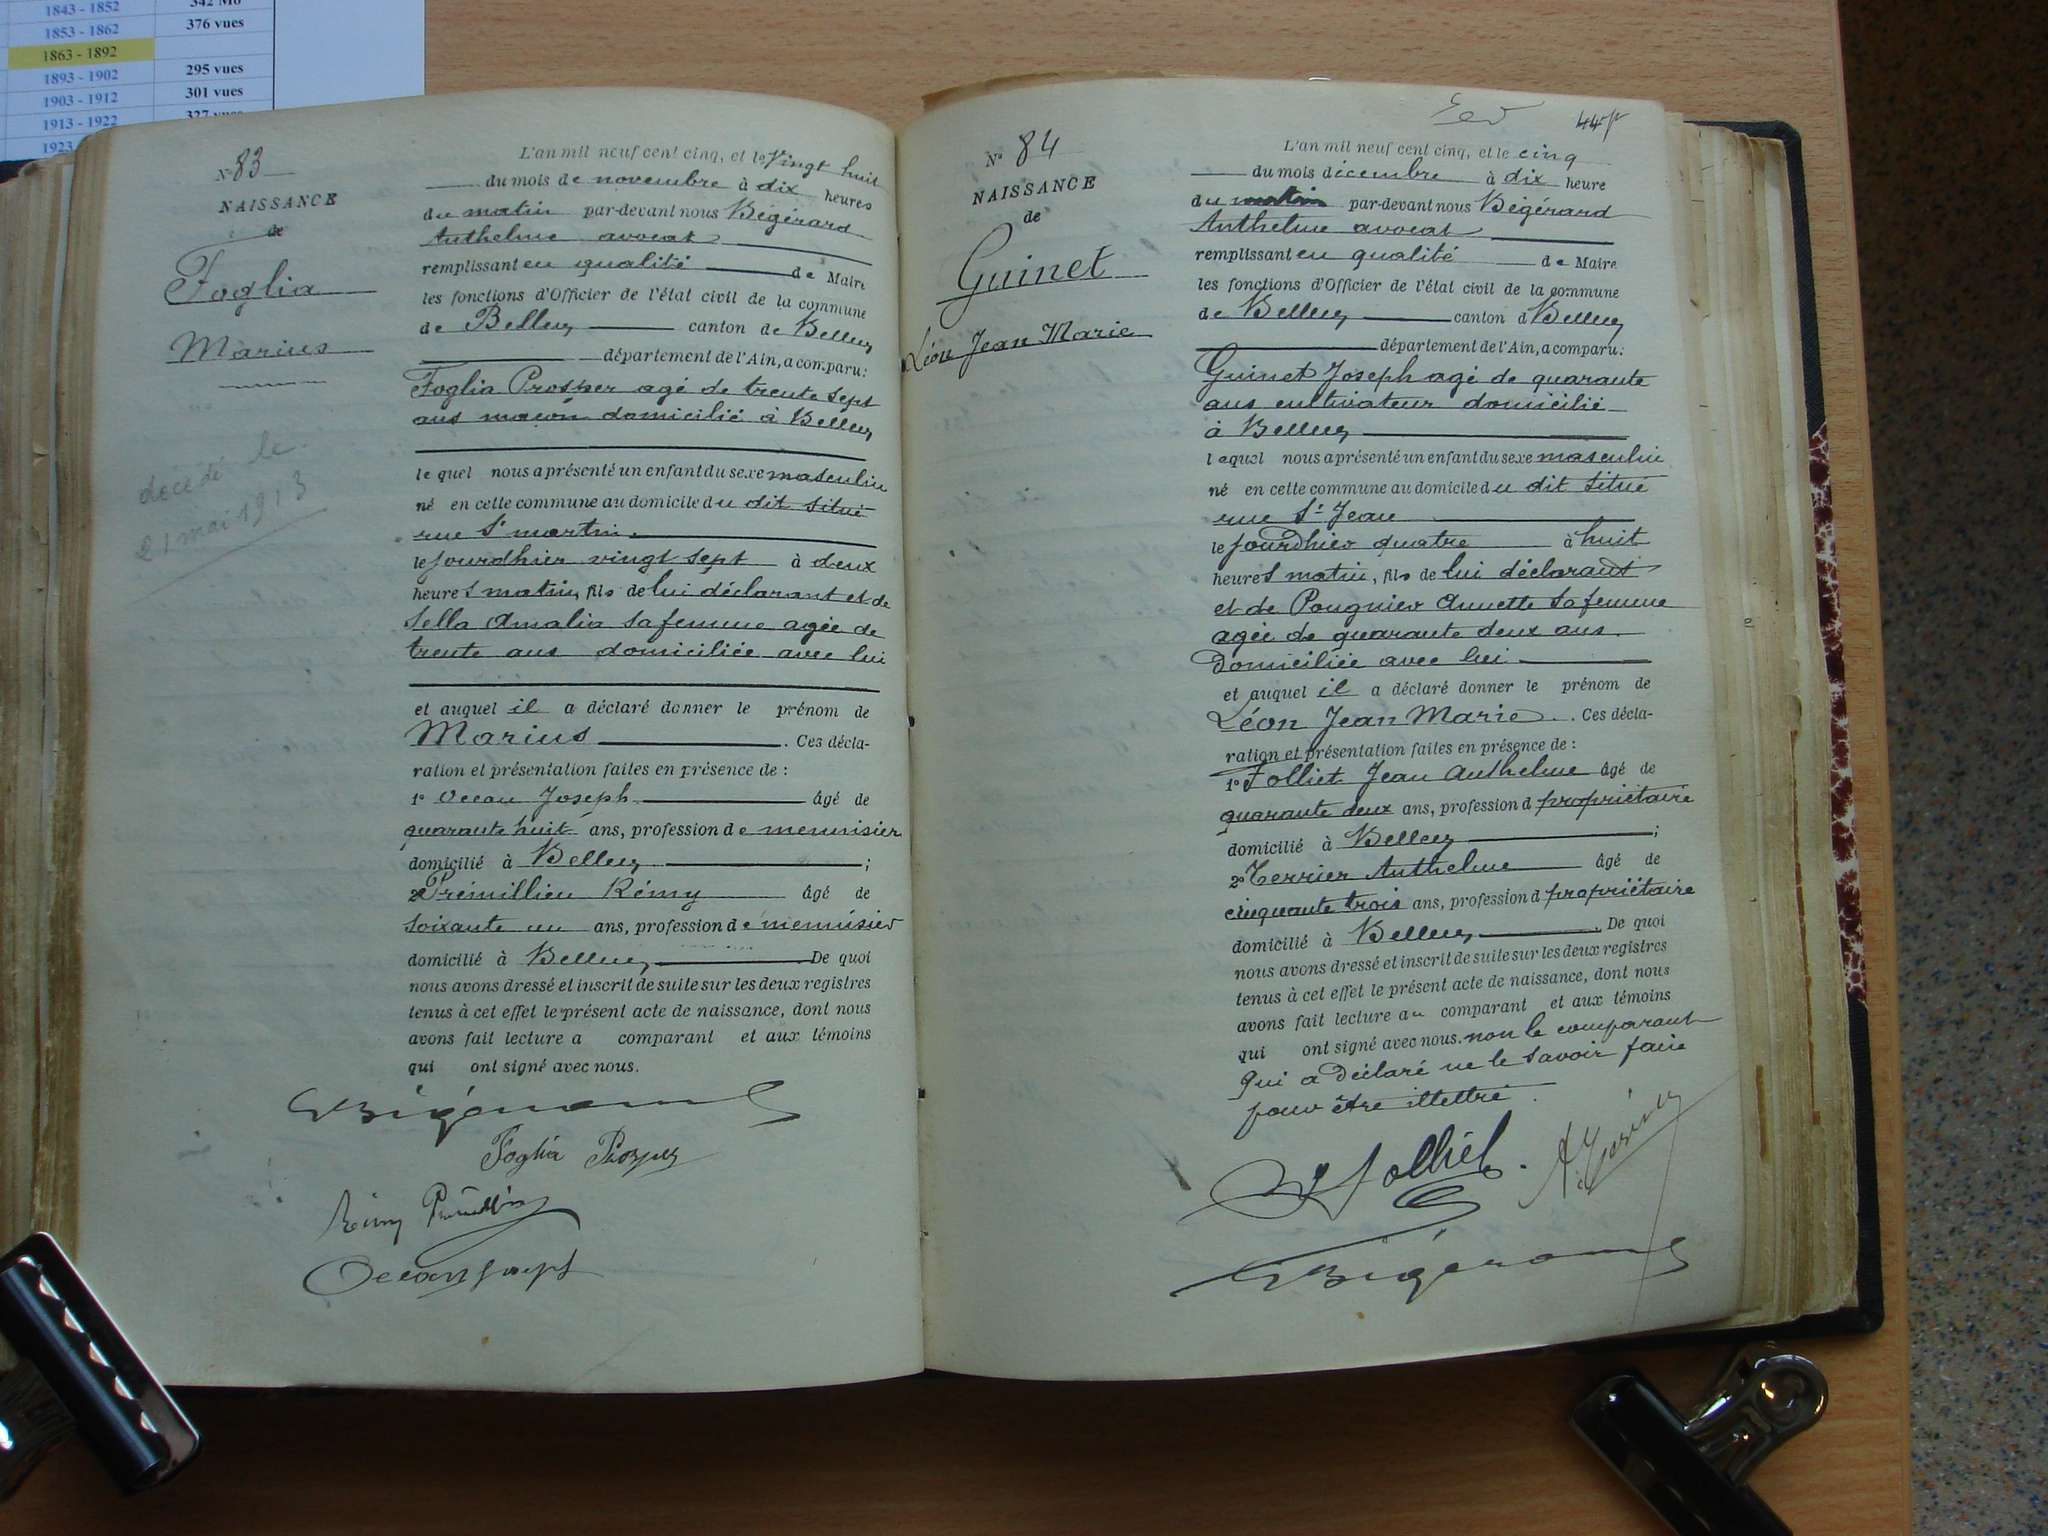 1843 - 1852 342 Mo
1853 - 1862 376 vues
1863 - 1892
1893 - 1902 295 vues
1903 - 1912 301 vues
1913 - 1922 327 vues
1923
N° 83
NAISSANCE
de
Foglia
Marius
décédé le
21 mai 1913
L'an mil neuf cent cinq, et le Vingt huit
du mois de novembre à dix heures
du matin par-devant nous Bégérard
Anthelme avocat
remplissant en qualité de Maire
les fonctions d'Officier de l'état civil de la commune
de Belley canton de Belley
département de l'Ain, a comparu:
Foglia Prosper agé de trente sept
ans maçon domicilié à Belley
le quel nous a présenté un enfant du sexe masculin
né en cette commune au domicile du dit situé
rue St martin
le jourdhier vingt sept à deux
heures matin, fils de lui déclarant et de
Sella Amalia sa femme agée de
trente ans domiciliée avec lui
et auquel il a déclaré donner le prénom de
Marius. Ces décla-
ration et présentation faites en présence de :
1° Occau Joseph âgé de
quarante huit ans, profession de menuisier
domicilié à Belley ;
2° Prémillieu Rémy âgé de
soixante un ans, profession de menuisier
domicilié à Belley De quoi
nous avons dressé et inscrit de suite sur les deux registres
tenus à cet effet le présent acte de naissance, dont nous
avons fait lecture a comparant et aux témoins
qui ont signé avec nous.
Bégérard
Foglia Prosper
Rémy Prémillieu
Joseph
44
N° 84
NAISSANCE
de
Guinet
Léon Jean Marie
L'an mil neuf cent cinq, et le cinq
du mois décembre à dix heure
du matin par-devant nous Bégérard
Anthelme avocat
remplissant en qualité de Maire
les fonctions d'Officier de l'état civil de la commune
de Belley canton d Belley
département de l'Ain, a comparu:
Guinet Joseph agé de quarante
ans cultivateur domicilié
à Belley
lequel nous a présenté un enfant du sexe masculin
né en cette commune au domicile du dit situé
rue St Jean
le jourdhier quatre à huit
heures matin, fils de lui déclarant
et de Pougnier Annette sa femme
agée de quarante deux ans
domiciliée avec lui
et auquel il a déclaré donner le prénom de
Léon Jean Marie. Ces décla-
ration et présentation faites en présence de :
1° Folliet Jean Anthelme âgé de
quarante deux ans, profession d propriétaire
domicilié à Belley ;
2° Terrier Anthelme âgé de
cinquante trois ans, profession d propriétaire
domicilié à Belley. De quoi
nous avons dressé et inscrit de suite sur les deux registres
tenus à cet effet le présent acte de naissance, dont nous
avons fait lecture au comparant et aux témoins
qui ont signé avec nous. non le comparant
qui a déclaré ne le savoir faire
pour être illettré.
Folliet
A. Terrier
Bégérard